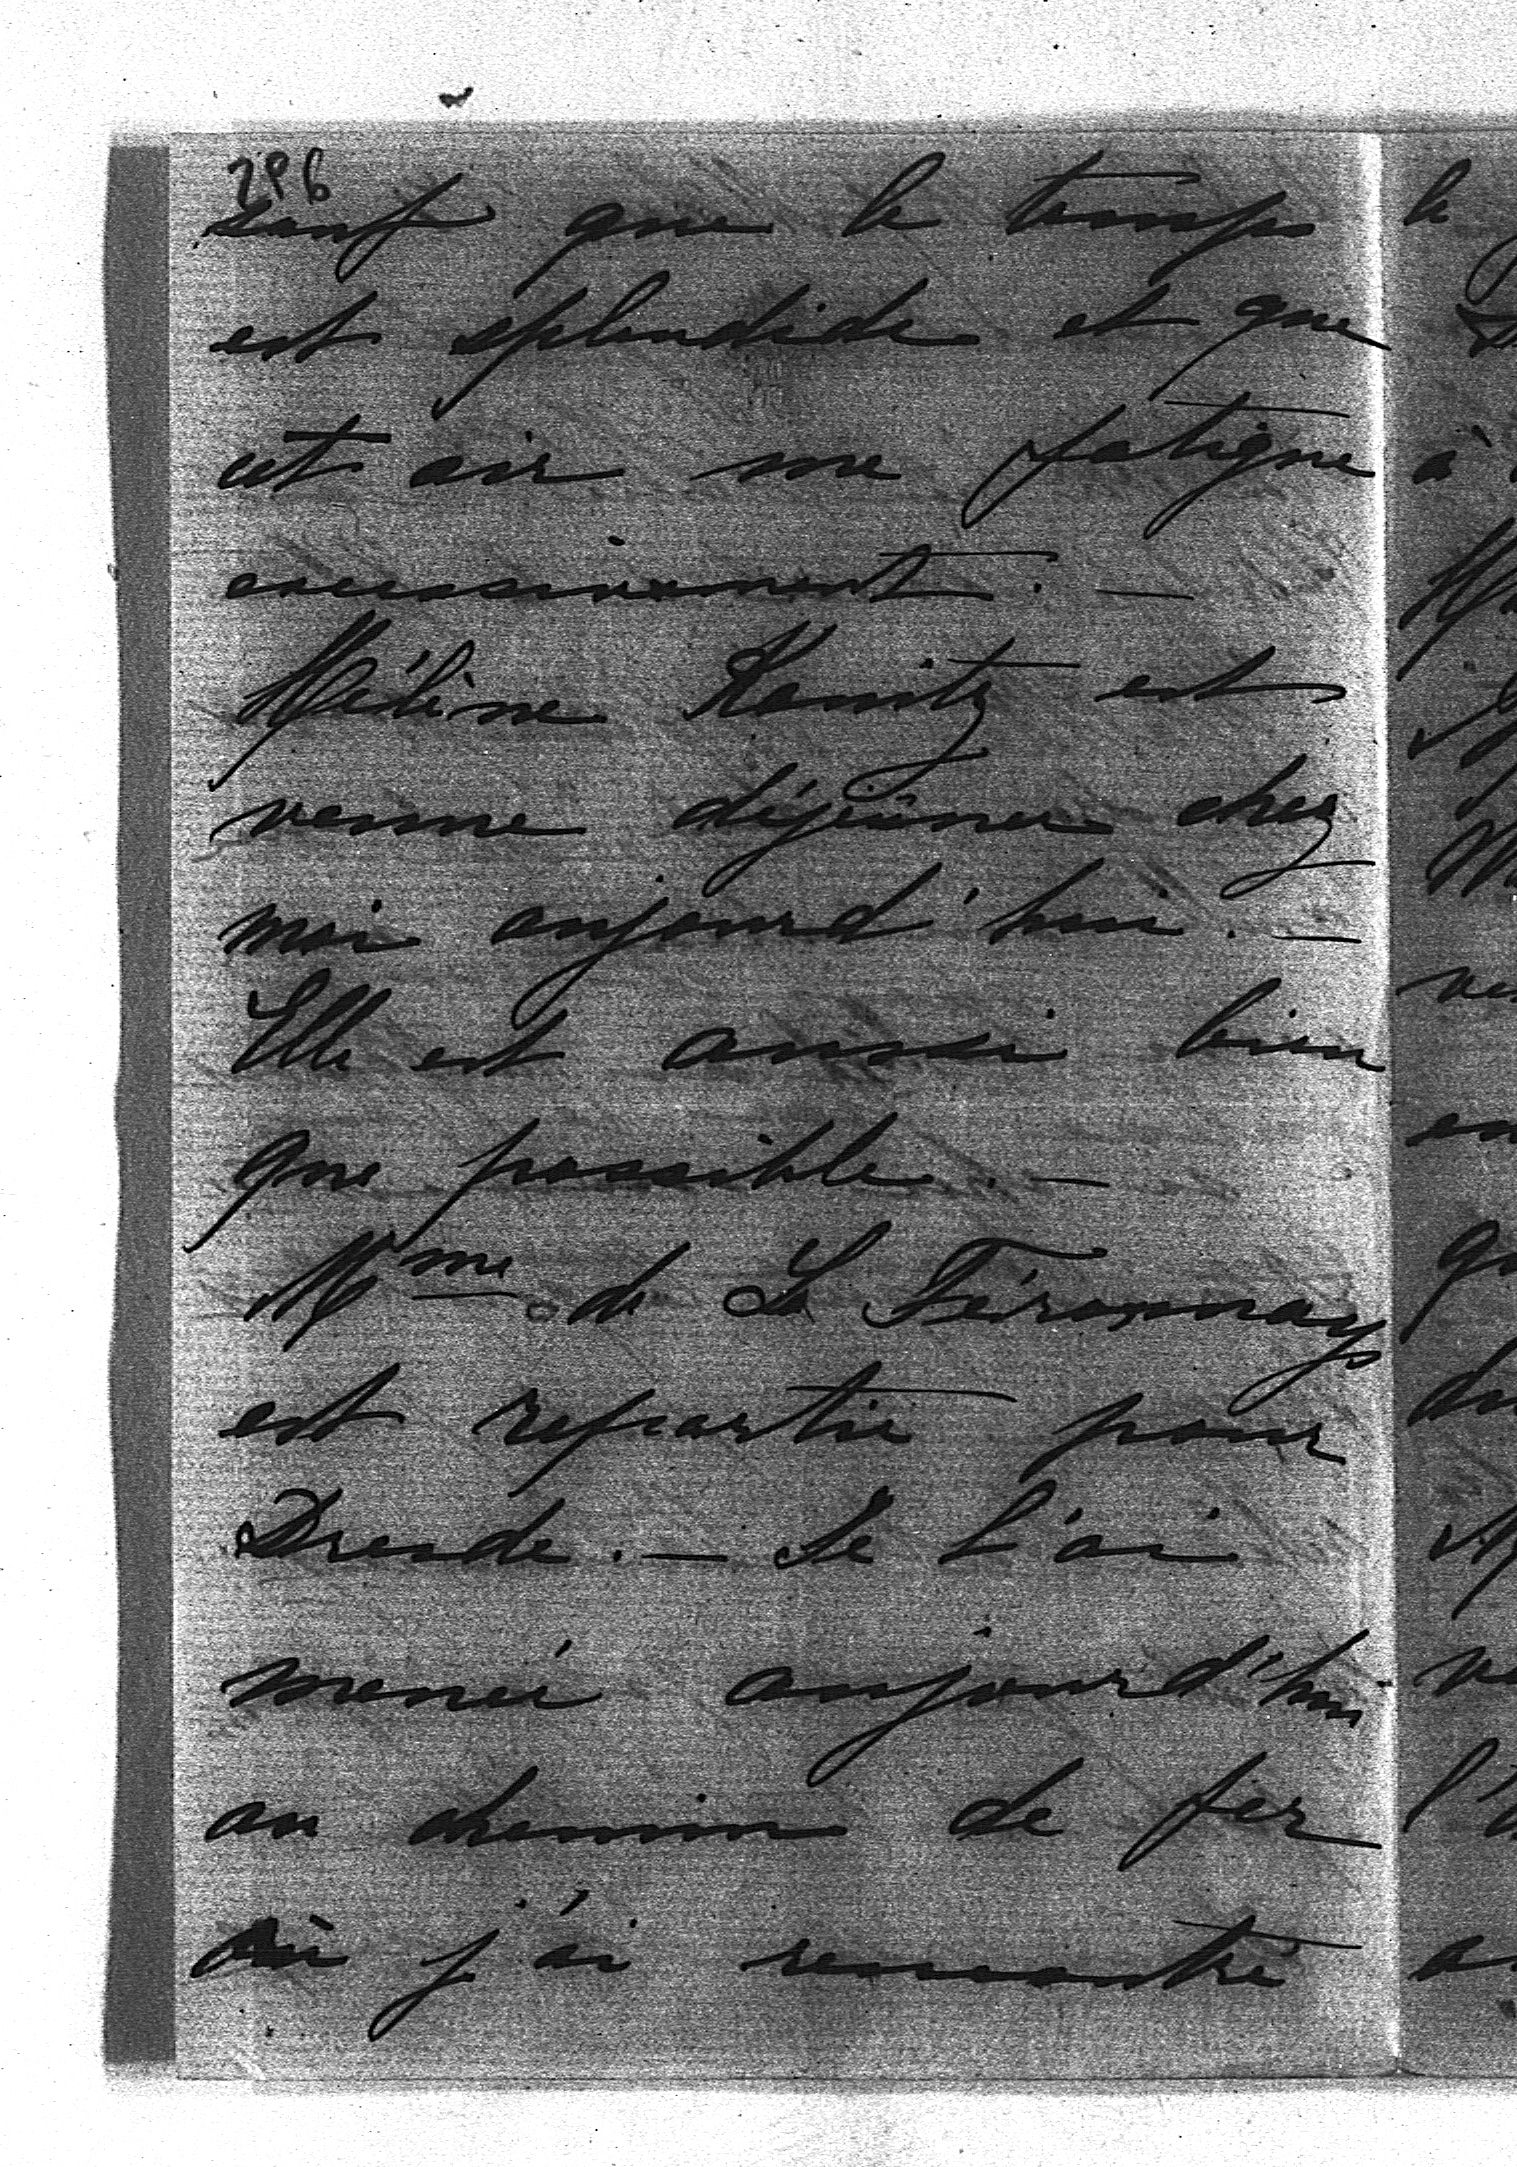 296
sauf que le temps
est splendide et que
cet air me fatigue
excessivement. —
Hélène Kanitz est
venue déjeûner chez
moi aujourd'hui. —
Elle est aussi bien
que possible. —
Mme de La Féronnays
est repartie pour
Dresde. — Je l'ai
menée aujourd'hui
au chemin de fer
où j'ai rencontré